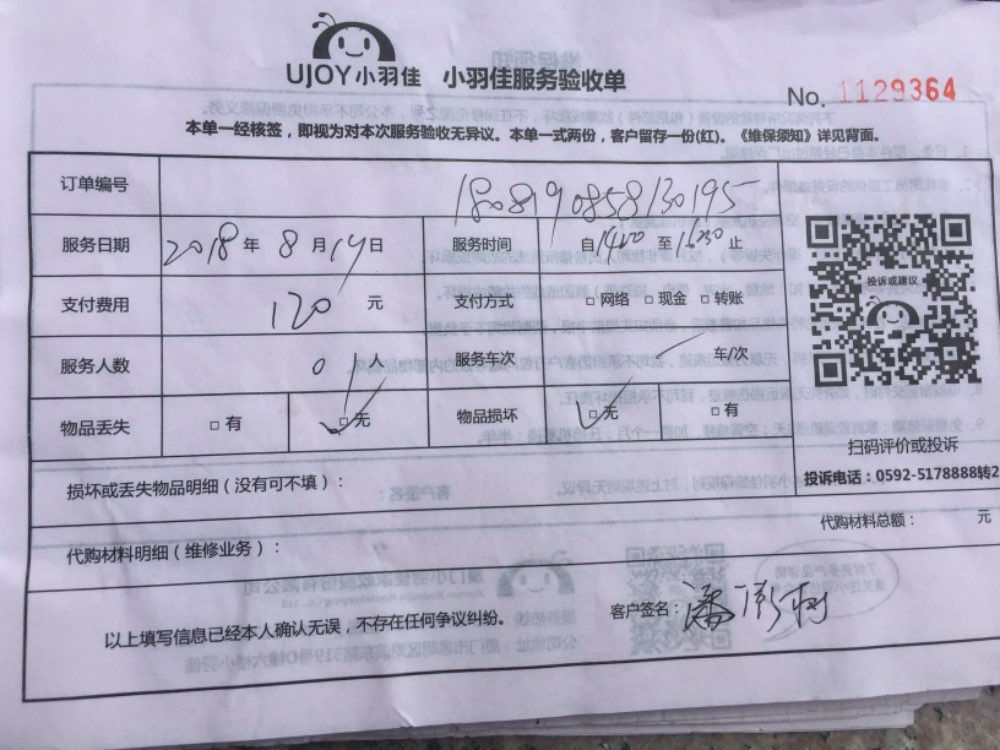 UJOY小羽佳 小羽佳服务验收单
No. 1129364
本单一经核签，即视为对本次服务验收无异议。本单一式两份，客户留存一份(红)。《维保须知》详见背面。
订单编号 1808190858130195
服务日期 2018 年 8 月 19 日 服务时间 自 1400 至 1630 止
支付费用 120 元 支付方式 □ 网络 □ 现金 □ 转账
投诉或建议
服务人数 01 人 服务车次 车/次
物品丢失 □ 有 □ 无 物品损坏 □ 无 □ 有
扫码评价或投诉
投诉电话：0592-5178888转2
损坏或丢失物品明细（没有可不填）：
代购材料总额： 元
代购材料明细（维修业务）：
客户签名：潘
以上填写信息已经本人确认无误，不存在任何争议纠纷。